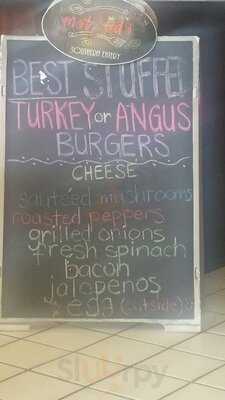 SOUTHERN EATERY
BEST STUFFED
TURKEY or ANGUS
BURGERS
CHEESE
sautéed mushrooms
roasted peppers
grilled onions
fresh spinach
bacon
jalapenos
egg (outside)
sluurpy